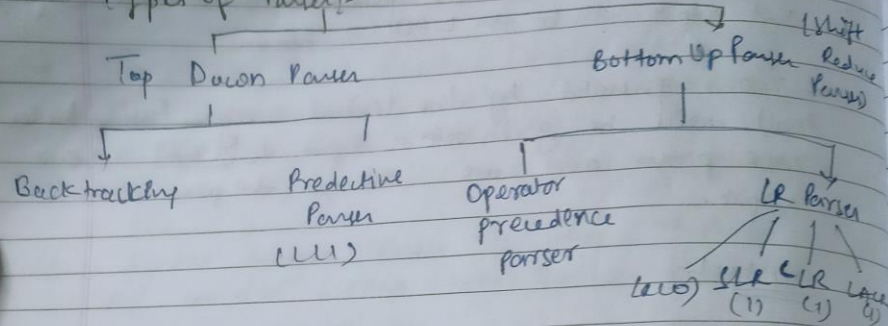 Types of Parser:
Top Down Parser
Bottom Up Parser
(Shift
Reduce
Parser)
Backtracking
Predective
Parser
(LL1)
Operator
precedence
parser
LR Parser
SLR
(1)
CLR
(1)
LALR
(1)